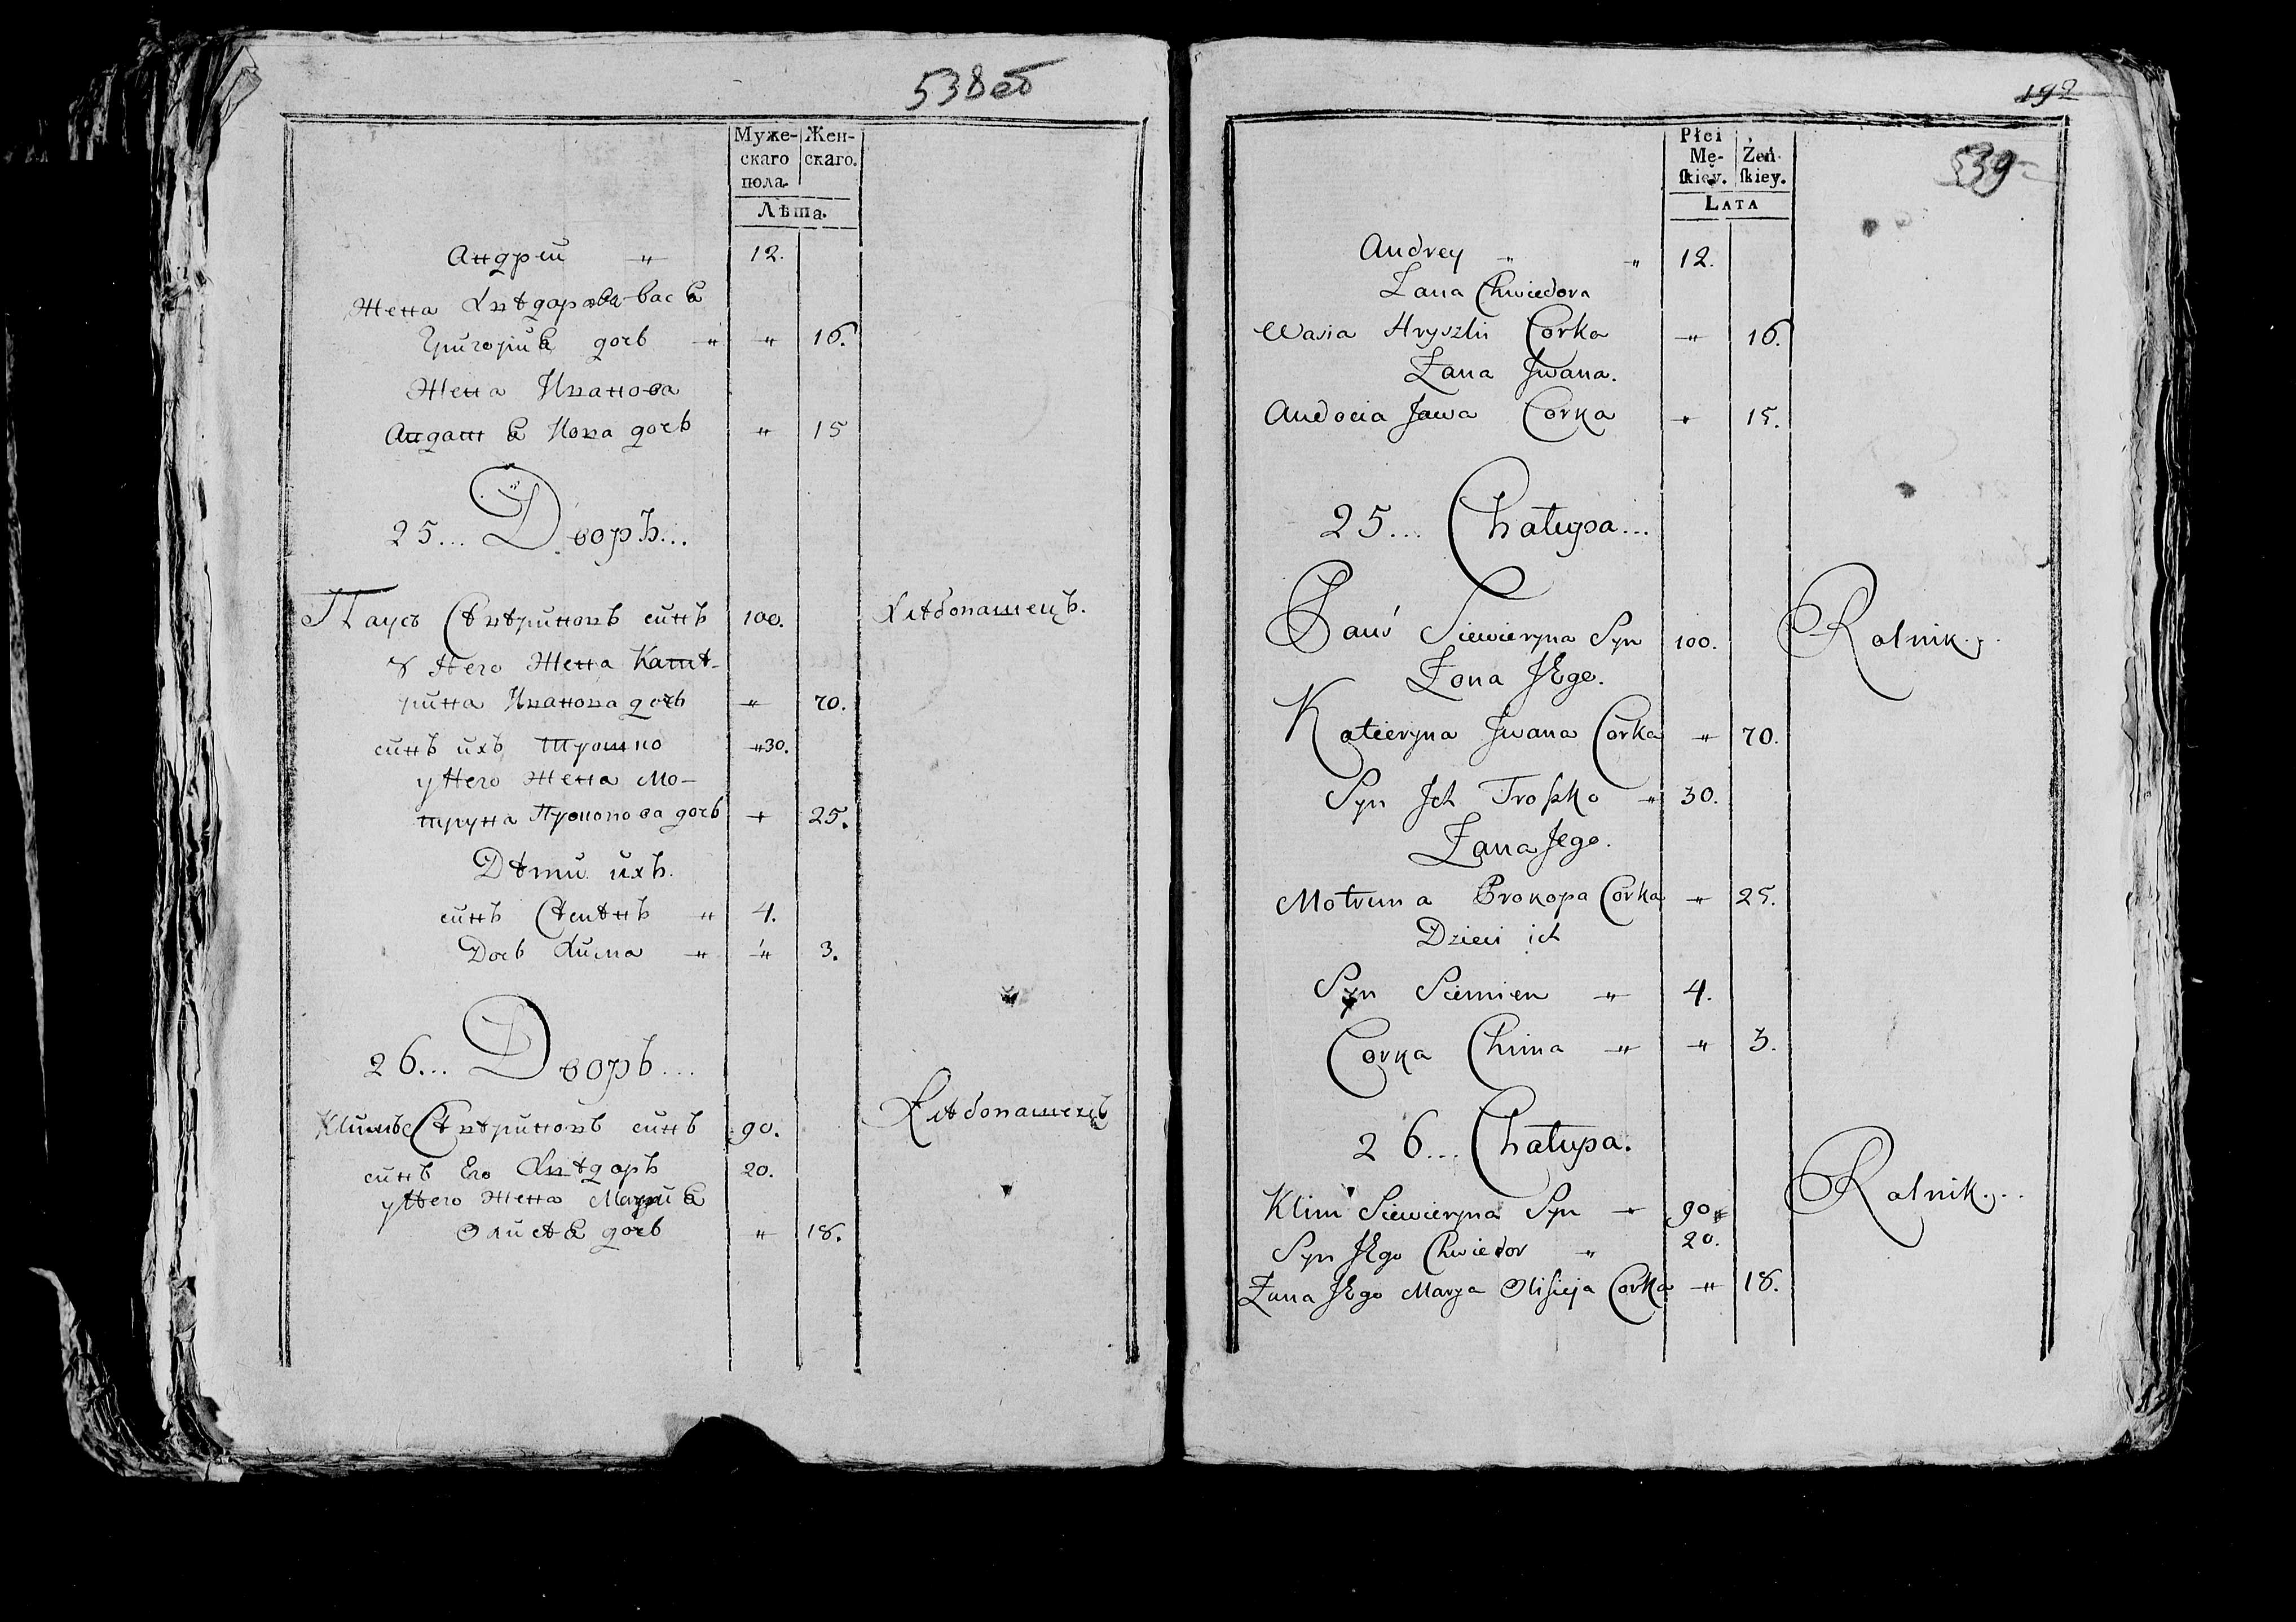 538об
Муже-
скаго
пола.
Жен-
скаго.
Лѣта.
Андрій " 12.
Жена Хвѣдорова Вася
Григорія дочь " " 16.
Жена Иванова
Иова дочь " 15
25... Дворъ...
Паусъ Сѣвѣриновъ синъ 100. Хлѣбопашецъ.
У Него Жена Катѣ-
рина Иванова дочь " 70.
синъ ихъ Трошко " 30.
у Него Жена Мо-
труна Прокопова дочь " 25.
Дѣти ихъ.
синъ Сѣмѣнъ " 4.
Дочь Хима " " 3.
26... Дворъ...
Климъ Сѣвѣриновъ синъ 90. Хлѣбопашецъ
синъ Его Хвѣдоръ 20.
у Него Жена Марія
Олисѣя дочь " 18.
192
539
Płci
Mę-
ſkiey.
Żeń
ſkiey.
LATA
Andrey " " 12.
Żana Chwiedora
Wasia Hryszki Corka " 16.
Żana Jwana.
Audocia Jawa Corka " 15.
25... Chałupa...
Pauś Siewieryna Syn 100. Rolnik.
Żona JEgo.
Katieryna Jwana Corka " 70.
Syn Jch Troſzko " 30.
Żana Jego.
Motruna Prokopa Corka " 25.
Dzieci ich
Syn Siemien " 4.
Corka Chima " " 3.
26... Chałupa.
Klim Siewieryna Syn " 90. Rolnik...
Syn JEgo Chwiedor " 20.
Żana JEgo Marya Oliſieja Corka " 18.